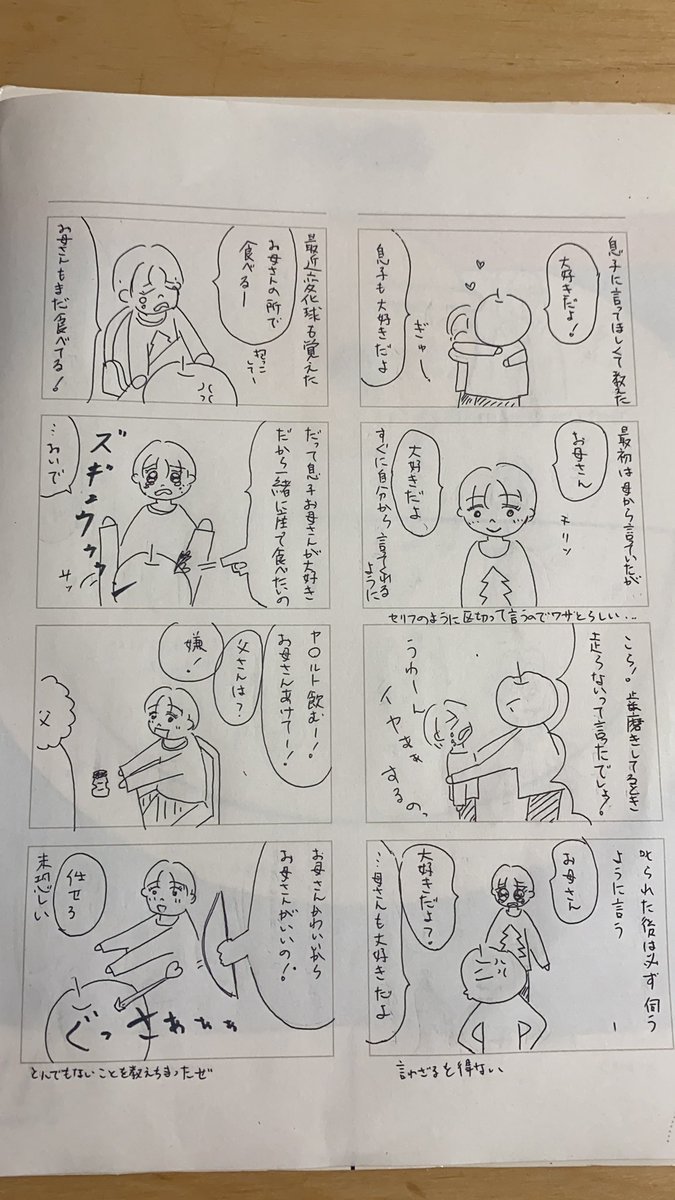 息子に言ってほしくて教えた
大好きだよ!
ぎゅー
息子も大好きだよ
最初は母から言っていたが
お母さん
チリッ
大好きだよ
すぐに自分から言ってくれる
ように
セリフのように区切って言うのでワザとらしい…
こら!歯磨きしてるとき
走らないって言ったでしょ!
うわーん
イヤぁぁ
するの、
叱られた後は必ず伺う
ように言う
お母さん
大好きだよ?
…母さんも大好きだよ
言わざるを得ない
最近変化球も覚えた
お母さんの所で
食べるー
抱っこ
してー
お母さんもまだ食べてる!
だって息子お母さんが大好き
だから一緒に座って食べたいの
ズギュウゥゥン
サッ
…おいで
ヤ〇ルト飲むー!
お母さんあけてー!
父さんは?
嫌!
父
お母さんかわいいから
お母さんがいいの!
任せろ
末恐しい
ぐっさぁぁぁ
とんでもないことを教えちまったぜ